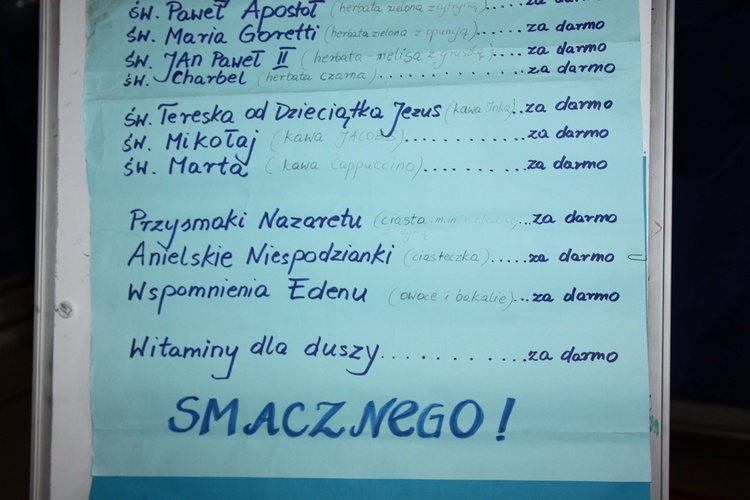 św. Paweł Apostoł (herbata zielona z cytryną)..... za darmo
św. Maria Goretti (herbata zielona z opuncją)..... za darmo
św. JAn Paweł II (herbata - melisa z gruszką) .... za darmo
św. Charbel (herbata czarna)............za darmo
św. Tereska od Dzieciątka Jezus (kawa Inka)..za darmo
św. Mikołaj (kawa JACOBS)............za darmo
św. Marta (kawa Cappuccino)..........za darmo
Przysmaki Nazaretu (ciasta: m.in. ...za darmo
Anielskie Niespodzianki (ciasteczka).....za darmo
Wspomnienia Edenu (owoce i bakalie)...za darmo
Witaminy dla duszy.............za darmo
SMACZNeGO!